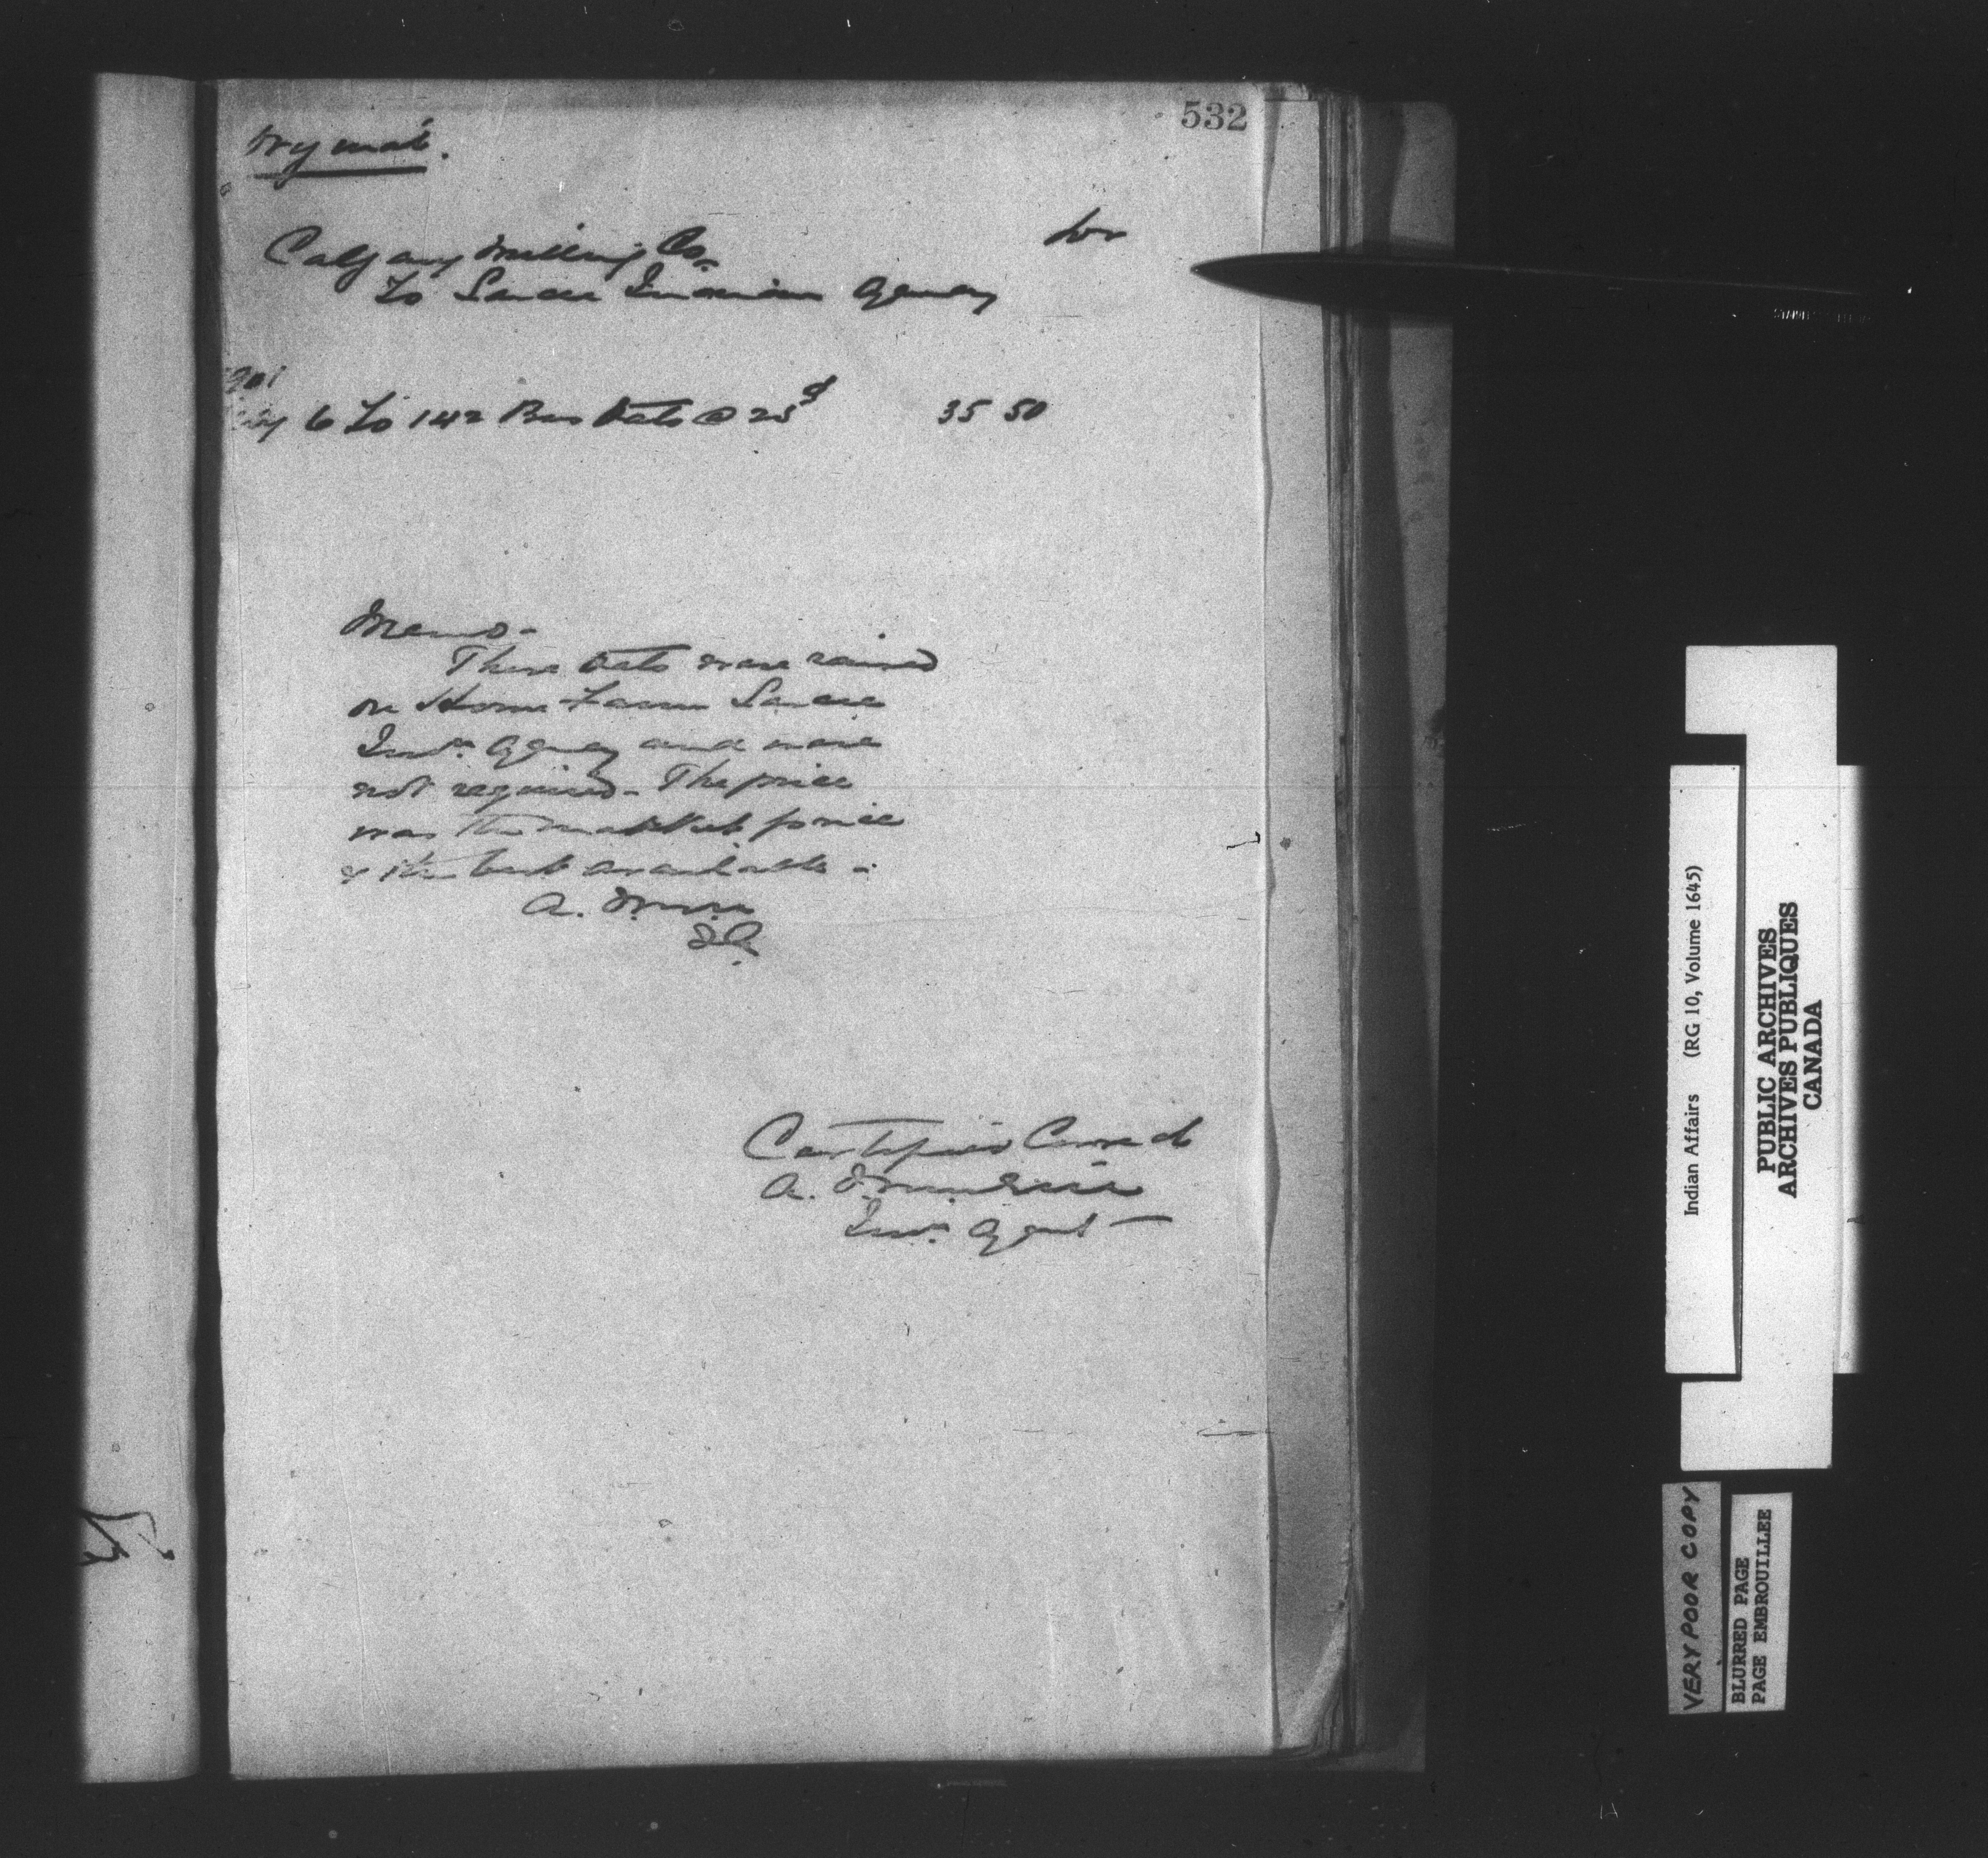 532
Calgary Milling Co.
Dr
To Sarcee Indian Agency
6 To 142 Bus Oats @ 25¢ 35 50
Memo-
These Oats were raised
on Home Farm Sarcee
Indn. Agency and were
not required - The price
was the market price
& the best available -
A.
Certified Correct
A.
Indn. Agent -
Indian Affairs (RG 10, Volume 1645)
PUBLIC ARCHIVES
ARCHIVES PUBLIQUES
CANADA
VERY POOR COPY
BLURRED PAGE
PAGE EMBROUILLEE